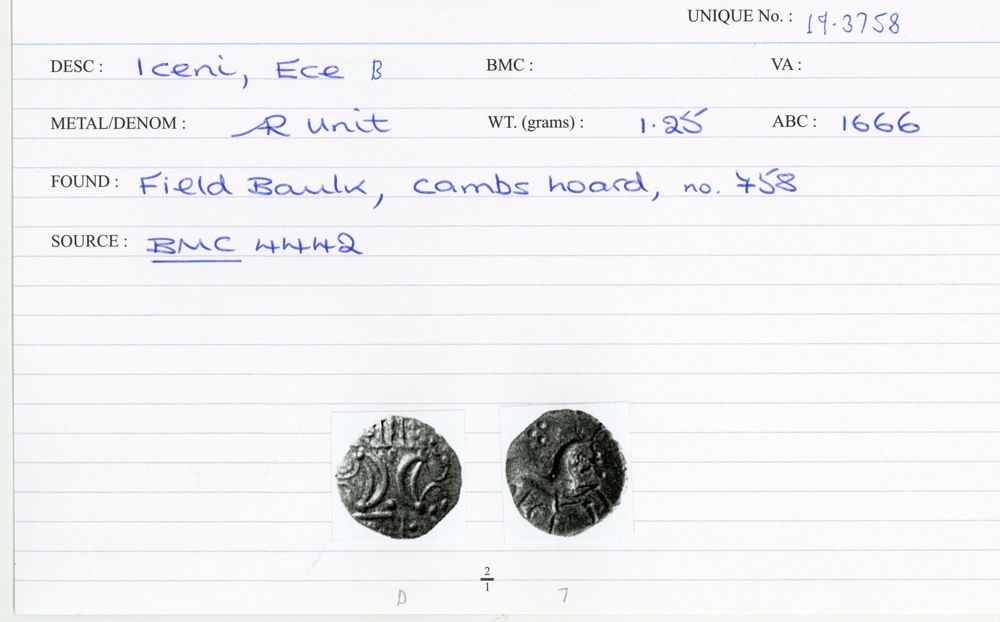 UNIQUE No. : 19-3758
DESC : Iceni, Ece B BMC : VA :
METAL/DENOM : AR Unit WT. (grams) : 1.25 ABC : 1666
FOUND : Field Baulk, Cambs hoard, no. 758
SOURCE : BMC 4442
2
1
D 7